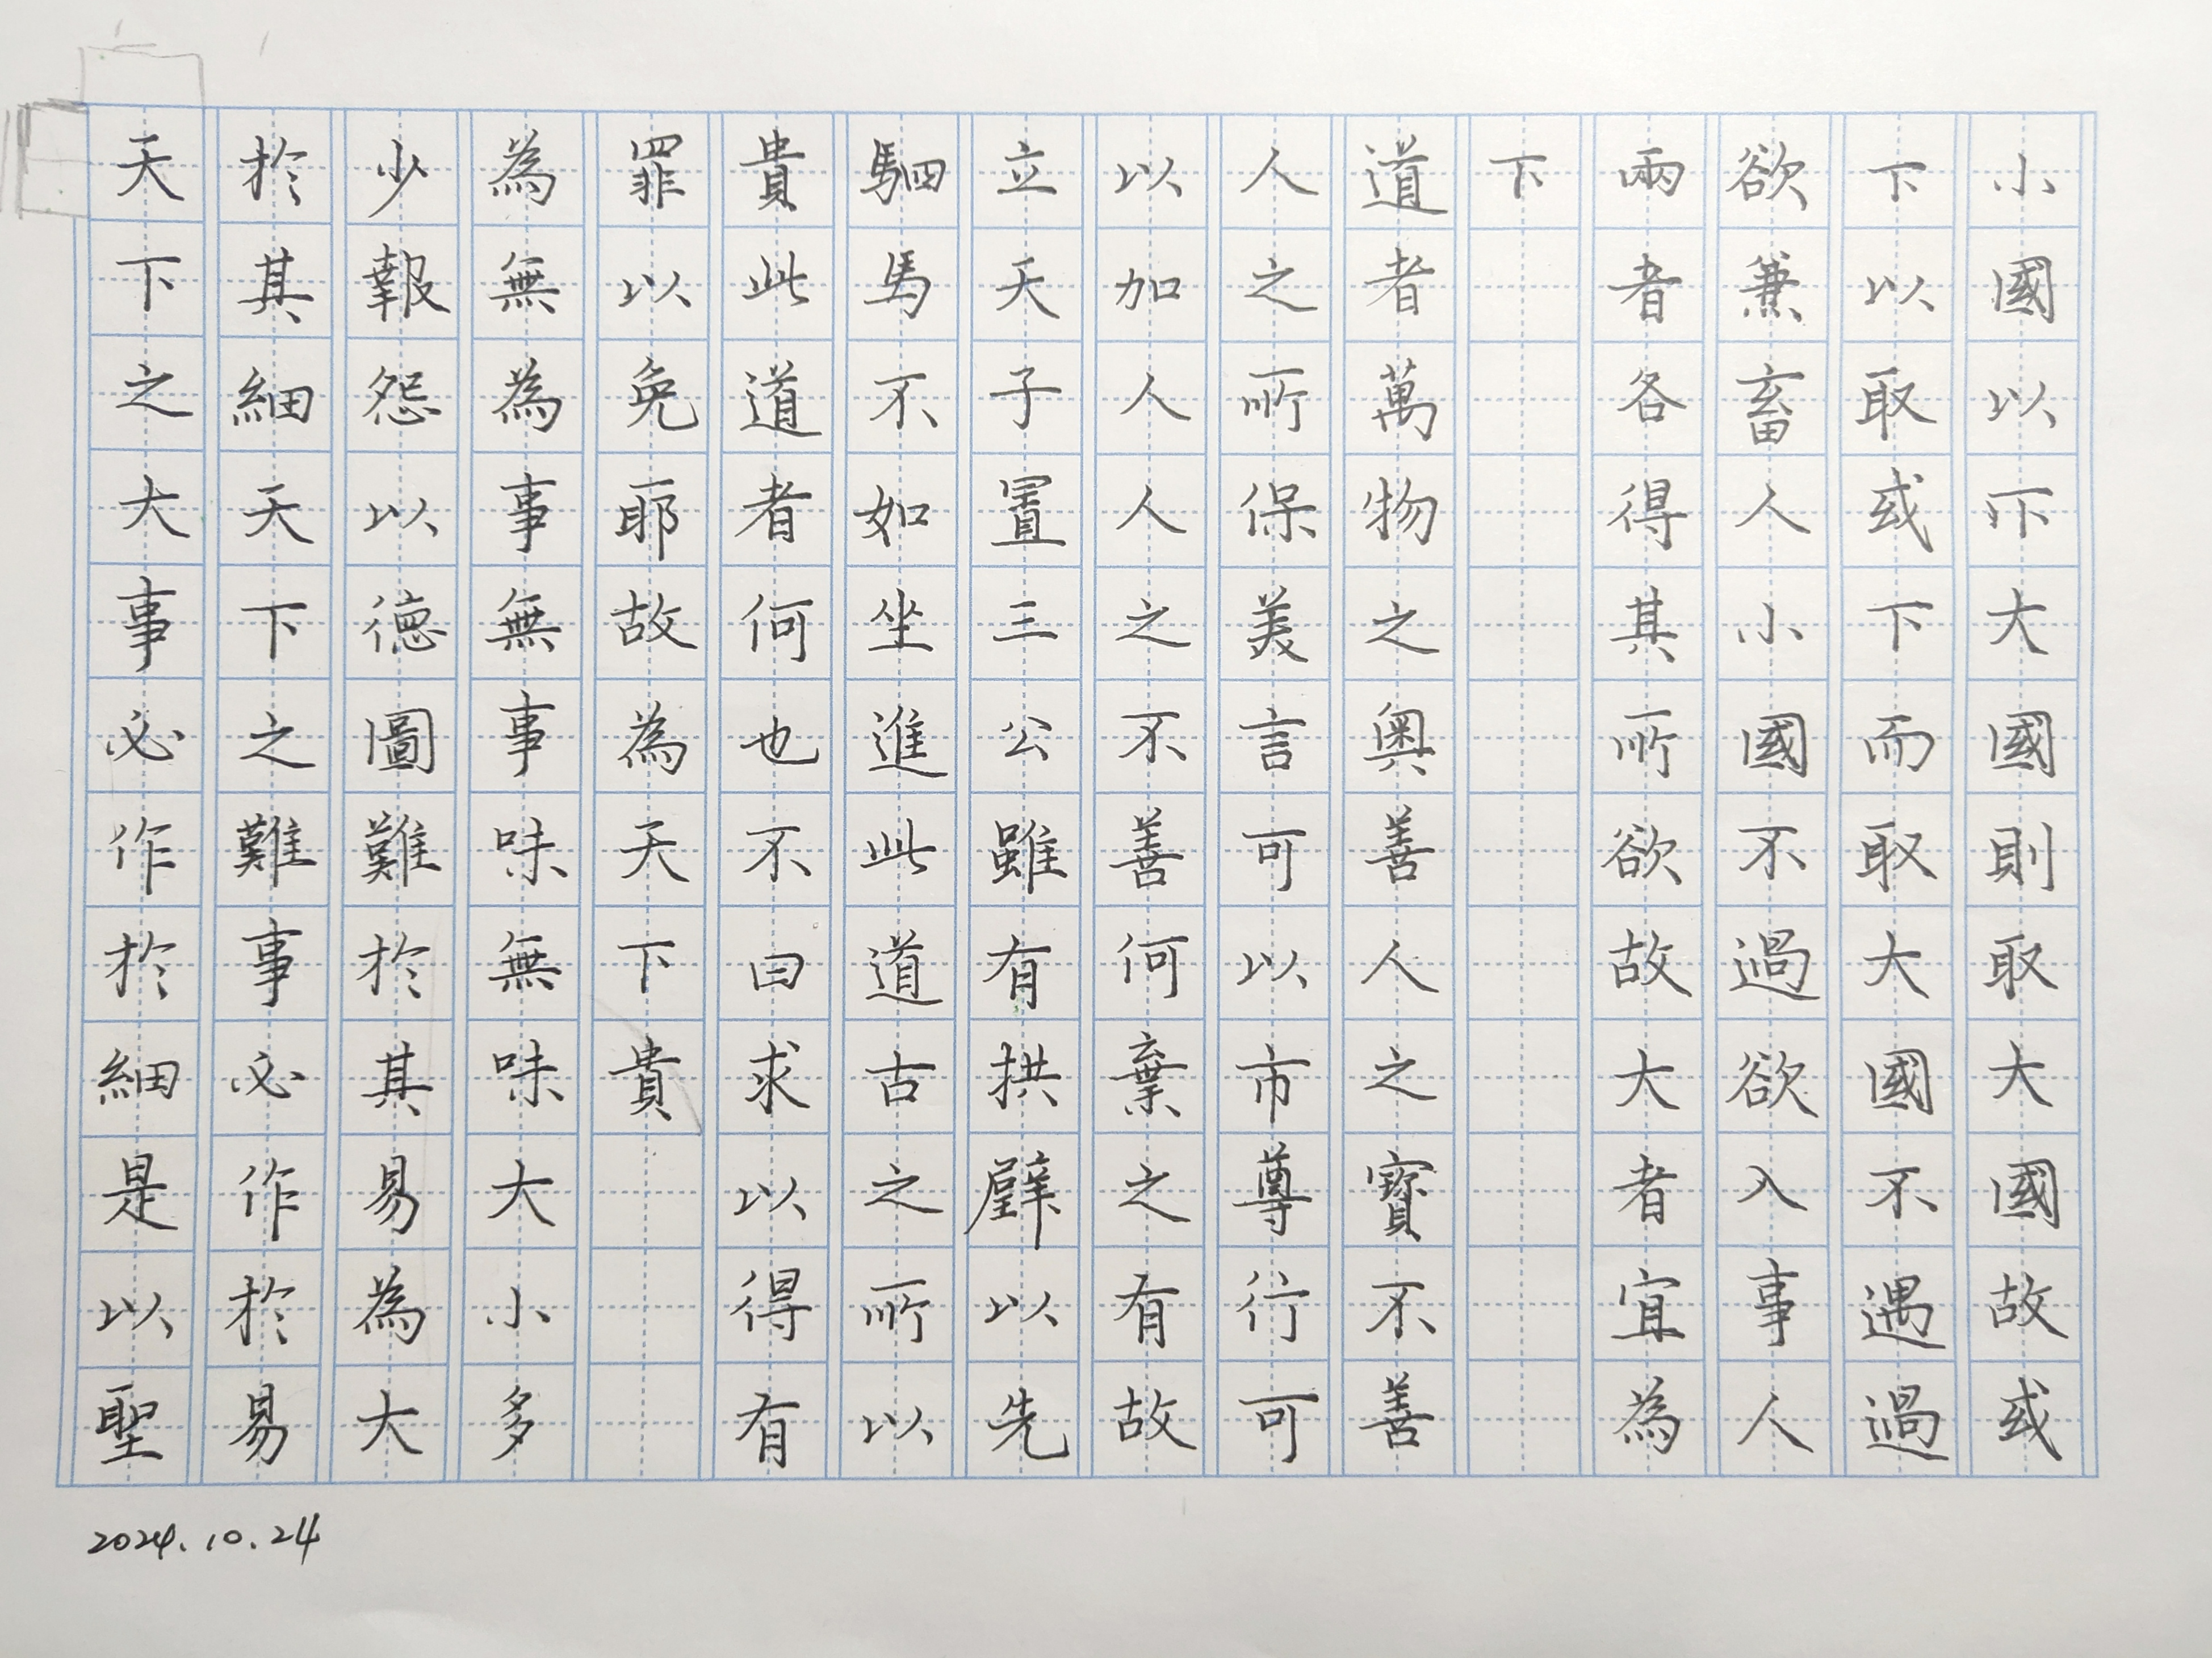 小國以下大國則取大國故或
下以取或下而取大國不遇過
欲兼畜人小國不過欲入事人
兩者各得其所欲故大者宜為
下
道者萬物之奧善人之寶不善
人之所保美言可以市尊行可
以加人人之不善何棄之有故
立天子置三公雖有拱璧以先
駟馬不如坐進此道古之所以
貴此道者何也不曰求以得有
罪以免耶故為天下貴
為無為事無事味無味大小多
少報怨以德圖難於其易為大
於其細天下之難事必作於易
天下之大事必作於細是以聖
2024.10.24